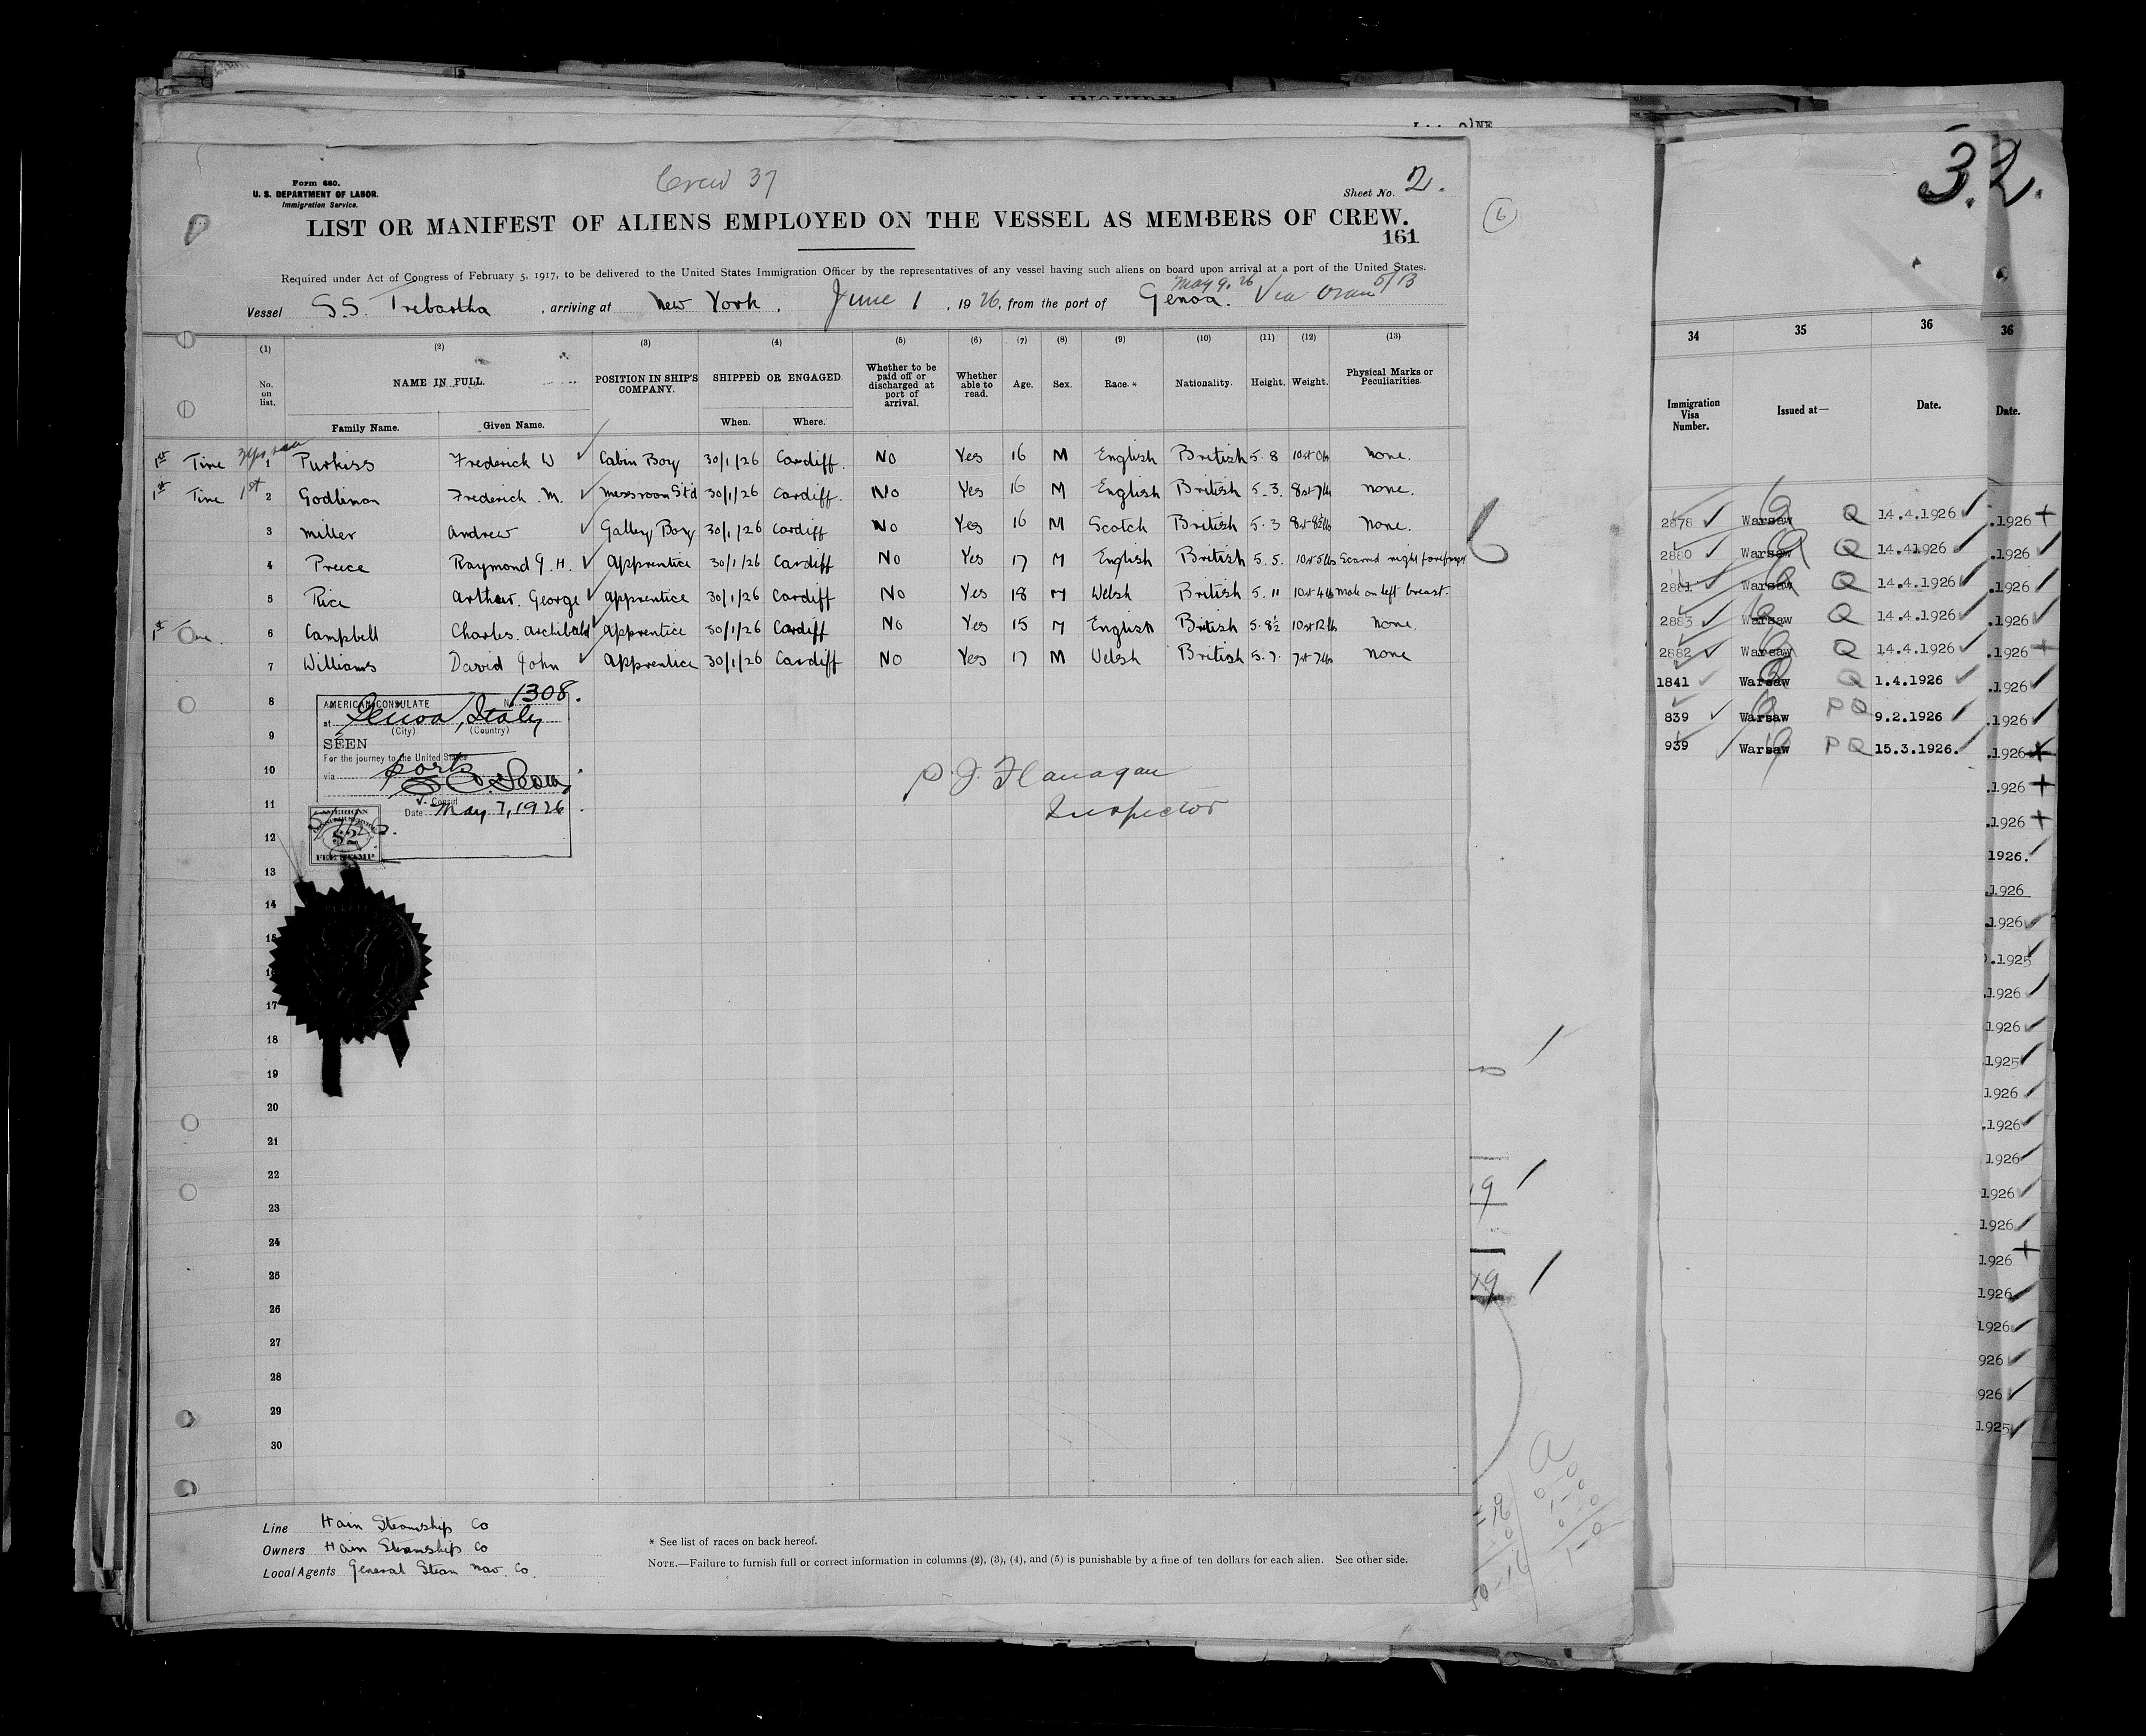 Form 680.
U. S. DEPARTMENT OF LABOR.
Immigration Service.
Crew 37
Sheet No. 2.
LIST OR MANIFEST OF ALIENS EMPLOYED ON THE VESSEL AS MEMBERS OF CREW.
161
Required under Act of Congress of February 5, 1917, to be delivered to the United States Immigration Officer by the representatives of any vessel having such aliens on board upon arrival at a port of the United States.
May 9, 26
Vessel S.S. Trebartha, arriving at New York, June 1, 1926, from the port of Genoa. Via Oran 5/13
(1) (2) (3) (4) (5) (6) (7) (8) (9) (10) (11) (12) (13)
No. on list. NAME IN FULL. POSITION IN SHIP'S COMPANY. SHIPPED OR ENGAGED Whether to be paid off or discharged at port of arrival. Whether able to read. Age. Sex. Race.* Nationality. Height. Weight. Physical Marks or Peculiarities.
Family Name. Given Name. When. Where.
1st Time 1 Purkiss Frederick W Cabin Boy 30/1/26 Cardiff. No Yes 16 M English British 5.8 10st 0lb None.
1st Time 1st 2 Godliman Frederick. M. Messroom Std 30/1/26 Cardiff. No Yes 16 M English British 5.3. 8st 7lb None.
3 Miller Andrew Galley Boy 30/1/26 Cardiff No Yes 16 M Scotch British 5.3 8st 8½lbs None.
4 Preece Raymond G. H. Apprentice 30/1/26 Cardiff No Yes 17 M English British 5.5. 10st 5lbs Scarred right forefinger
5 Rice Arthur. George Apprentice 30/1/26 Cardiff No Yes 18 M Welsh British 5.11 10st 4lb Mole on left breast.
1st 6 Campbell Charles. Archibald Apprentice 30/1/26 Cardiff No Yes 15 M English British 5.8½ 10st 12lb None.
7 Williams David John Apprentice 30/1/26 Cardiff No Yes 17 M Welsh British 5.7. 7st 7lbs None
8
9
10
11
12
13
14
15
16
17
18
19
20
21
22
23
24
25
26
27
28
29
30
AMERICAN CONSULATE No. 1308.
at Genoa, Italy
(City) (Country)
SEEN
For the journey to the United States
via
V. Consul
Date May 7, 1926
AMERICAN
$2
FEE STAMP
P. J. Flanagan
Inspector
Line Hain Steamship Co
Owners Hain Steamship Co
Local Agents General Steam Nav. Co.
* See list of races on back hereof.
NOTE.—Failure to furnish full or correct information in columns (2), (3), (4), and (5) is punishable by a fine of ten dollars for each alien. See other side.
6
32.
34 35 36 36
Immigration Visa Number. Issued at— Date. Date.
2878 Warsaw Q 14.4.1926 .1926
2880 Warsaw Q 14.4.1926 .1926
2881 Warsaw Q 14.4.1926 .1926
2883 Warsaw Q 14.4.1926 .1926
2882 Warsaw Q 14.4.1926 .1926
1841 Warsaw Q 1.4.1926 .1926
839 Warsaw PQ 9.2.1926 .1926
939 Warsaw PQ 15.3.1926. .1926
.1926
.1926
1926.
.1926
.1926
.1925
.1926
.1926
.1925
.1926
.1926
.1926
.1926
.1926
.1926
1926
1926
926
926
1925